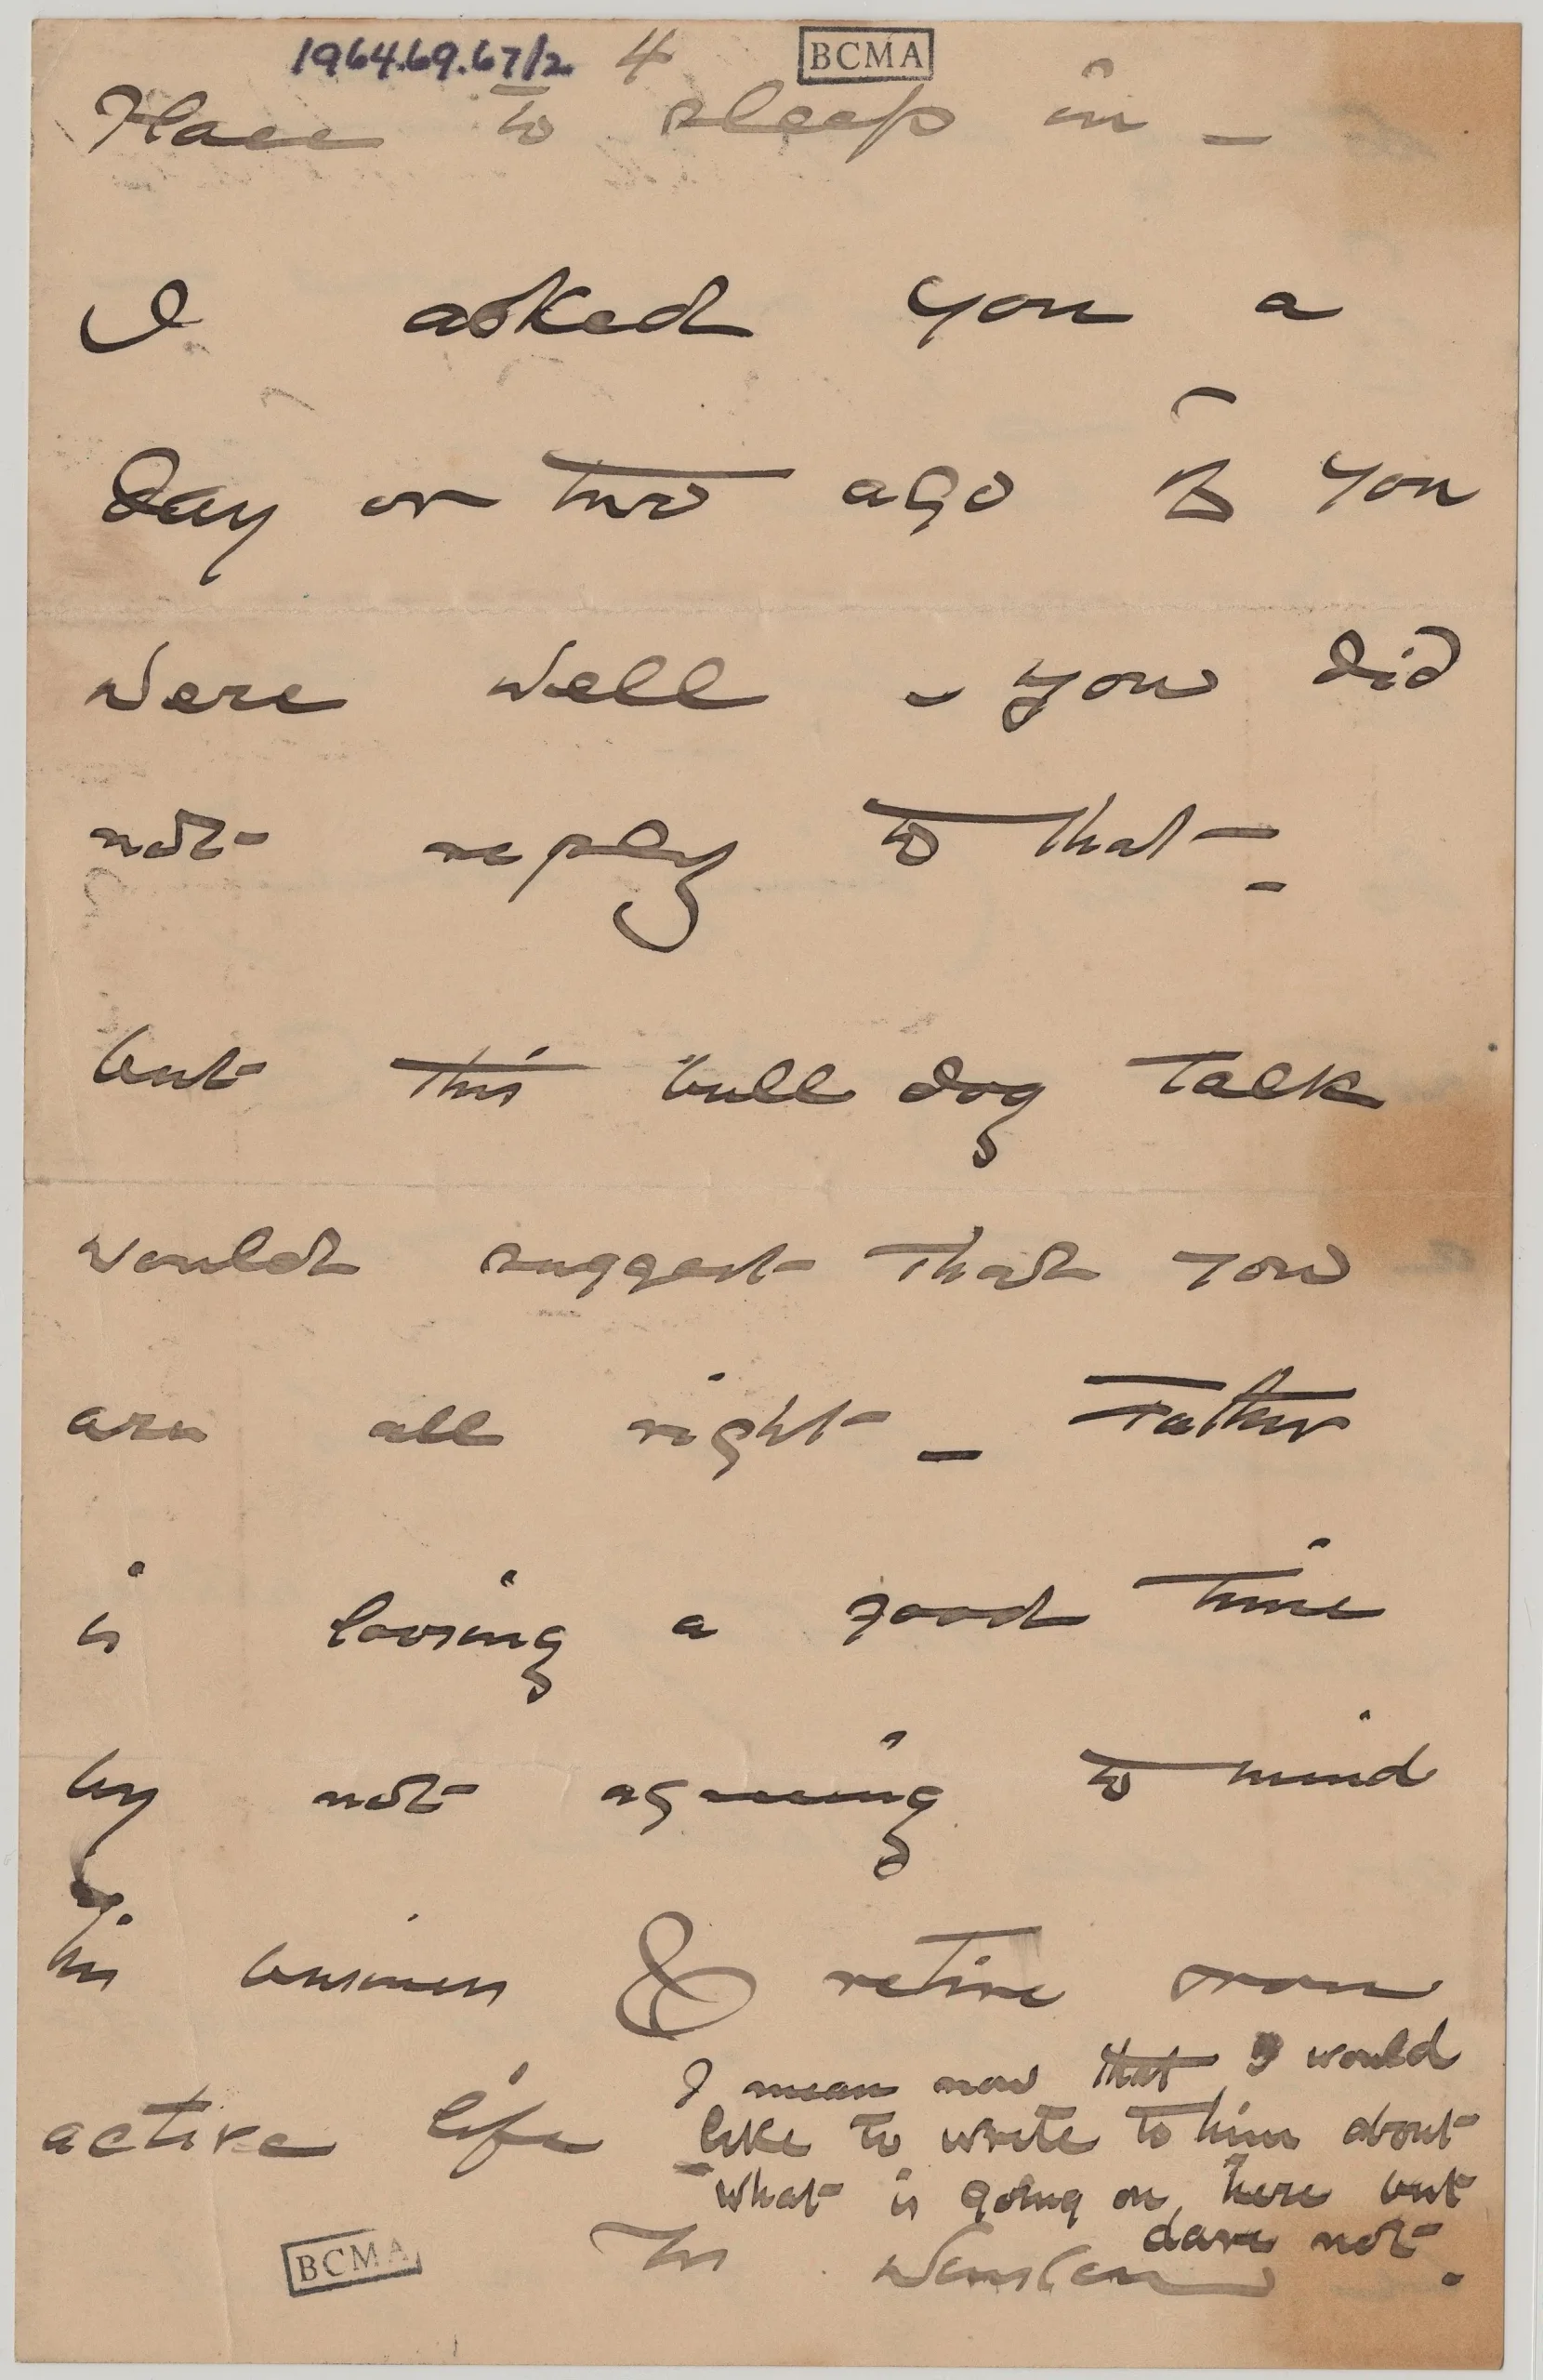 1964.69.67/2. 4 BCMA
Place to sleep in —
I asked you a
day or two ago if you
were well - you did
not reply to that -
but this bull dog talk
would suggest that you
are all right — Father
is loosing a good time
by not agreeing to mind
his business & retire from
active life
I mean now that I would
like to write to him about
what is going on here but
dare not.
Winslow
BCMA